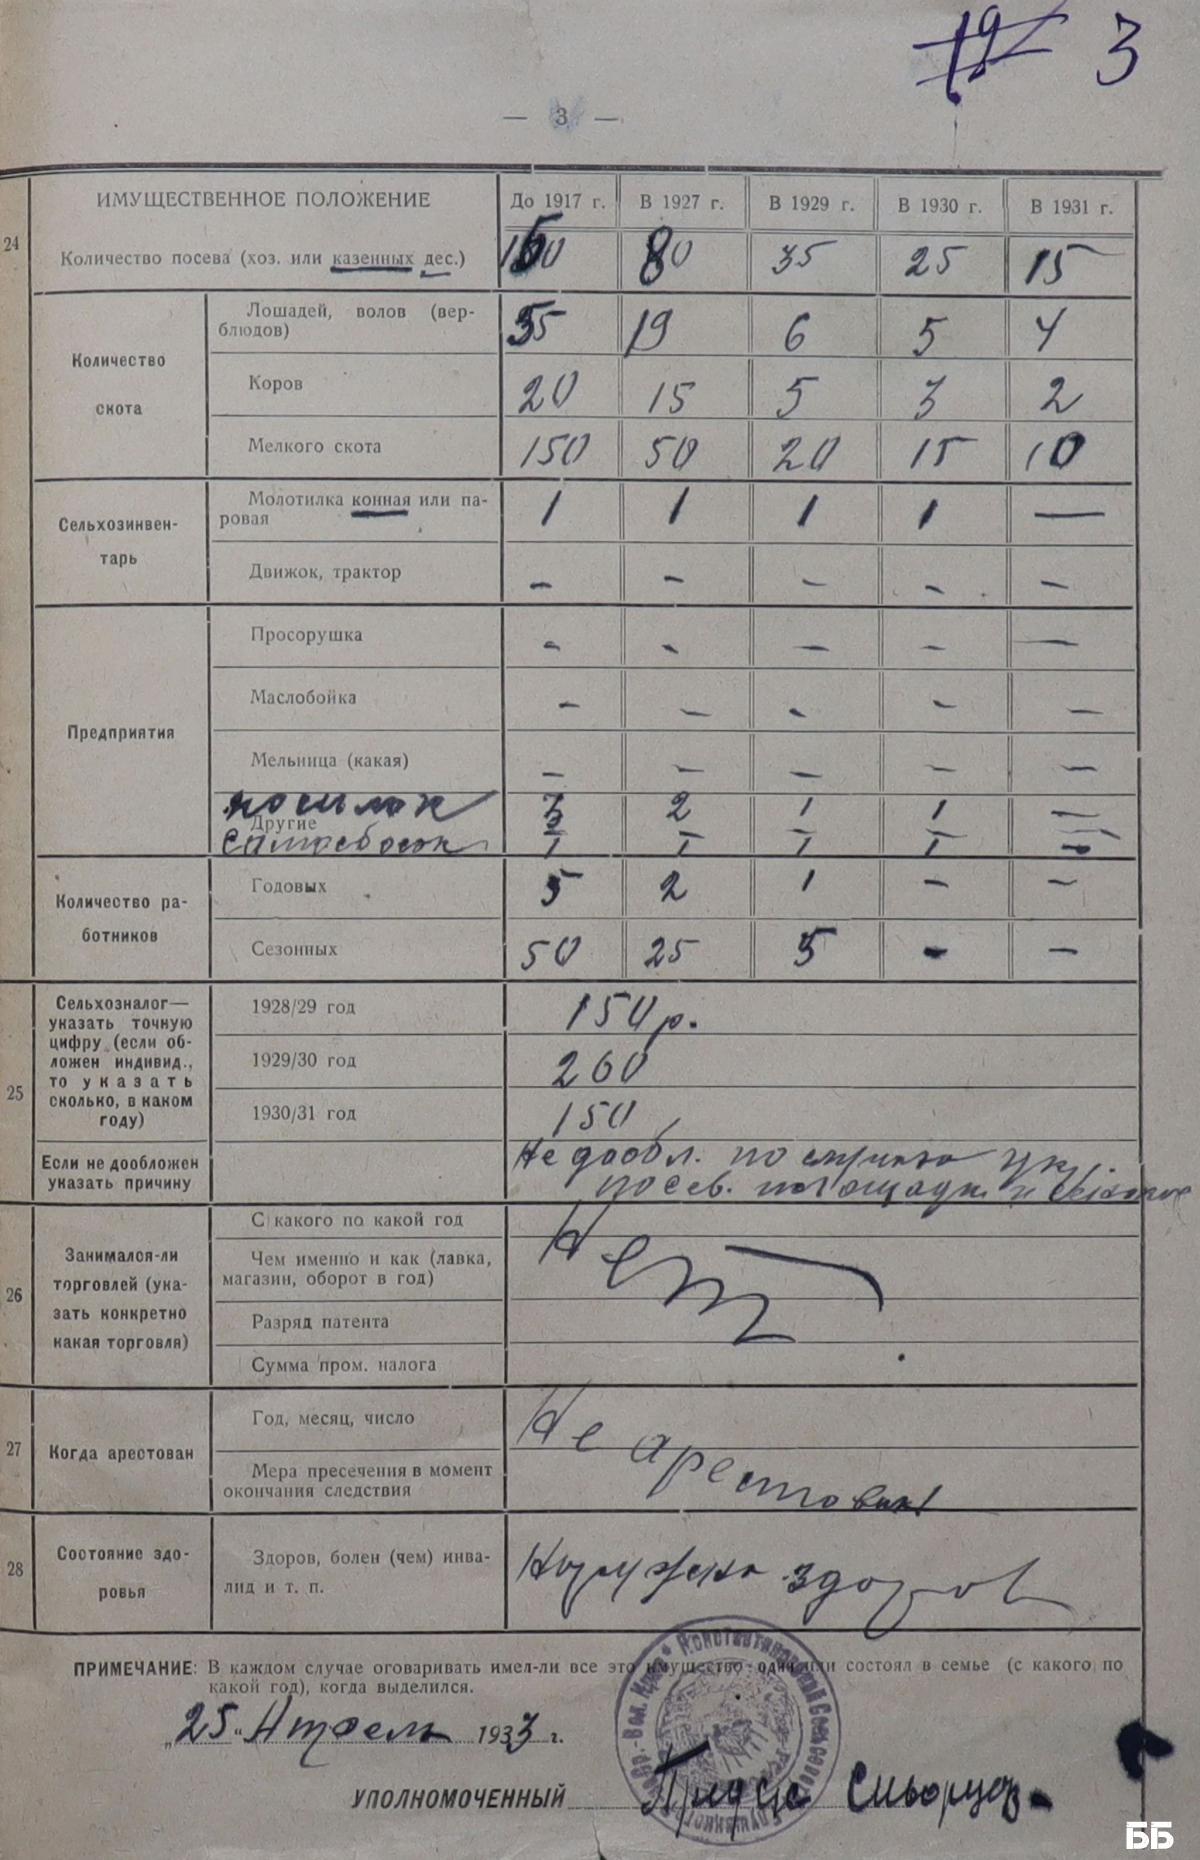 3
— 3 —
ИМУЩЕСТВЕННОЕ ПОЛОЖЕНИЕ До 1917 г. В 1927 г. В 1929 г. В 1930 г. В 1931 г.
24 Количество посева (хоз. или казенных дес.) 80 35 25 15
Количество скота
Лошадей, волов (вер-
блюдов) 35 19 6 5 4
Коров 20 15 5 3 2
Мелкого скота 150 50 20 15 10
Сельхозинвен-
тарь
Молотилка конная или па-
ровая 1 1 1 1 —
Движок, трактор – – – – –
Предприятия
Просорушка – – – – –
Маслобойка – – – – –
Мельница (какая) – – – – –
косилок 3 2 1 1 —
Другие
Самосброск 1 1 1 1 –
Количество ра-
ботников
Годовых 5 2 1 – –
Сезонных 50 25 5 – –
25 Сельхозналог—
указать точную
цифру (если об-
ложен индивид.,
то указать
сколько, в каком
году)
1928/29 год 150 р.
1929/30 год 260
1930/31 год 150
Если не дообложен
указать причину
Не дообл. по
посев. площади и
26 Занимался-ли
торговлей (ука-
зать конкретно
какая торговля)
С какого по какой год
Чем именно и как (лавка,
магазин, оборот в год)
Разряд патента
Сумма пром. налога
Нет
27 Когда арестован
Год, месяц, число
Мера пресечения в момент
окончания следствия
Не арестован
28 Состояние здо-
ровья
Здоров, болен (чем) инва-
лид и т. п.
здоров
ПРИМЕЧАНИЕ: В каждом случае оговаривать имел-ли все это имущество один или состоял в семье (с какого по
какой год), когда выделился.
„25“ Апрель 1933 г.
УПОЛНОМОЧЕННЫЙ
ББ